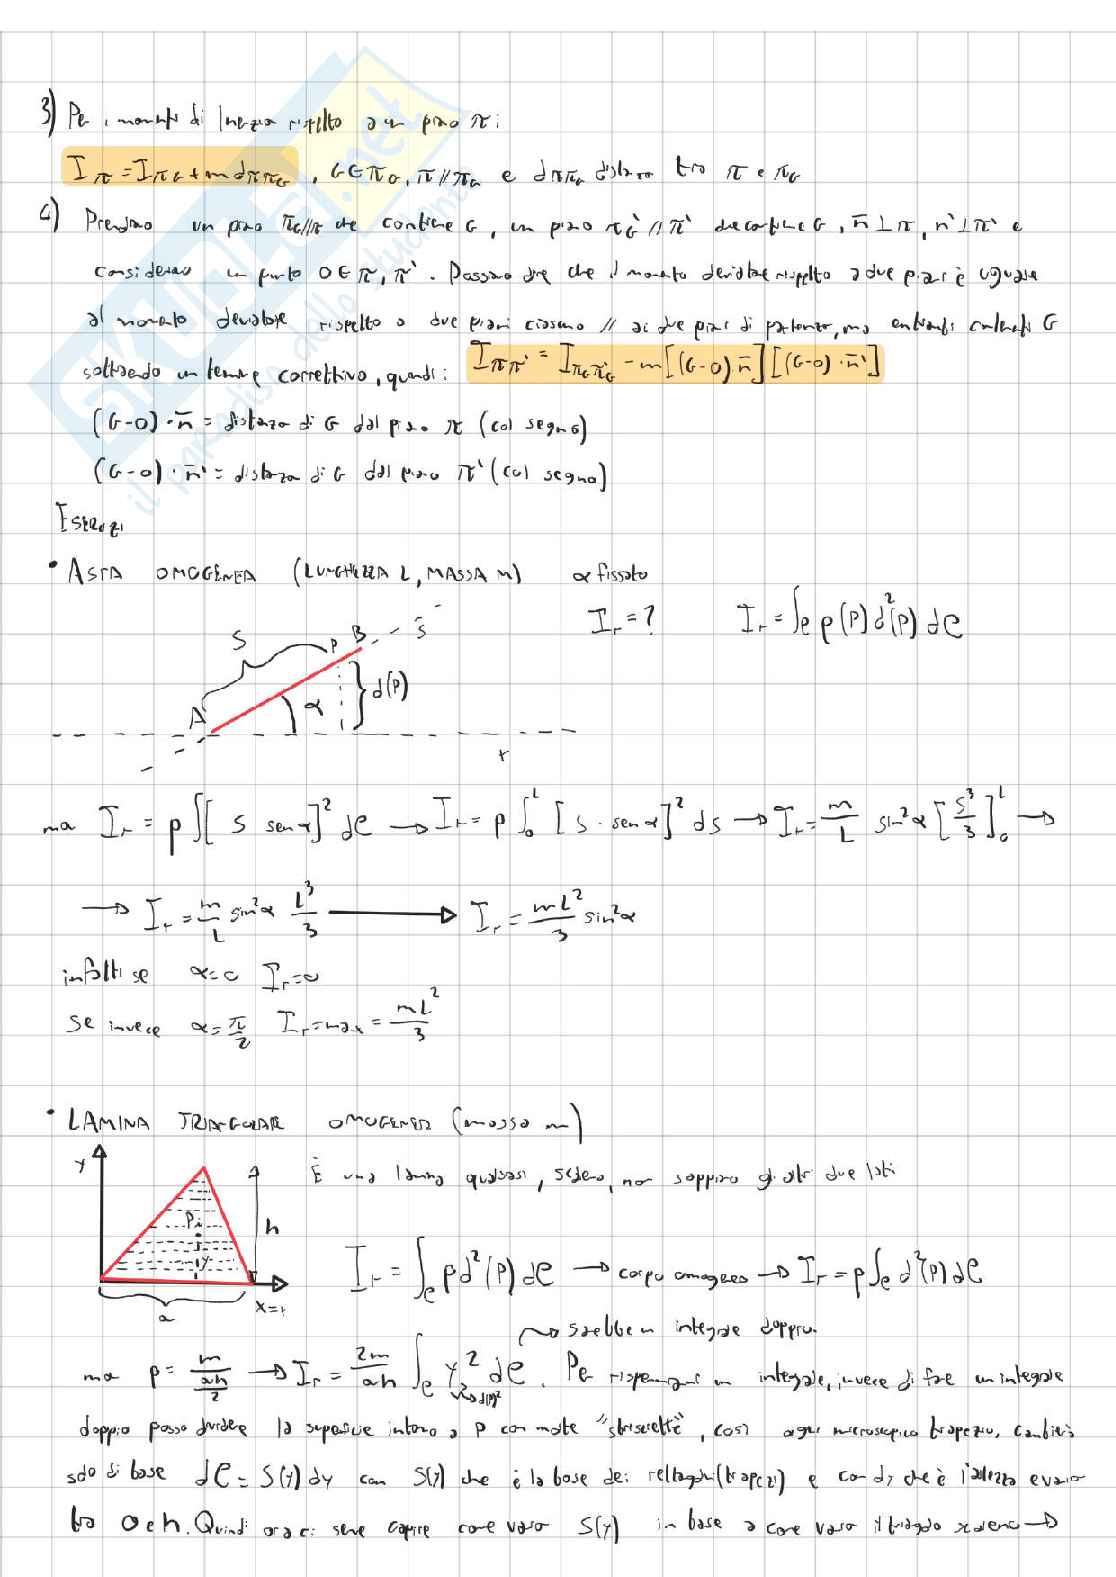 3) Per i momenti di Inerzia rispetto a un piano π:
I_π = I_πG + m d_ππG , G∈π_G, π//π_G e d_ππG distanza tra π e π_G
4) Prendiamo un piano π_G//π che contiene G, un piano π'_G // π' che contiene G, n̄⊥π, n̄'⊥π' e
consideriamo un punto O∈π,π'. Possiamo dire che il momento deviatore rispetto a due piani è uguale
al momento deviatore rispetto a due piani ciascuno // ai due piani di partenza, ma entrambi contenenti G
sottraendo un termine correttivo, quindi: I_ππ' = I_πGπ'G - m[(G-O)·n̄][(G-O)·n̄']
(G-O)·n̄ = distanza di G dal piano π (col segno)
(G-O)·n̄' = distanza di G dal piano π' (col segno)
Esercizi
• ASTA OMOGENEA (LUNGHEZZA L, MASSA M) α fissato
I_r = ? I_r = ∫_C ρ(P) d²(P) dC
S P B s̄
A α d(P)
r
ma I_r = ρ∫[s sen α]² dC → I_r = ρ∫_0^L [s·sen α]² ds → I_r = m/L sin²α [s³/3]_0^L →
→ I_r = m/L sin²α L³/3 → I_r = mL²/3 sin²α
infatti se α=0 I_r=0
se invece α=π/2 I_r=max = mL²/3
• LAMINA TRIANGOLARE OMOGENEA (massa m)
y P h y a x=r
È una lamina qualsiasi, scaleno, non sappiamo gli altri due lati
I_r = ∫_C ρd²(P) dC → corpo omogeneo → I_r = ρ∫_C d²(P) dC
→ sarebbe un integrale doppio.
ma ρ = m/(ah/2) → I_r = 2m/ah ∫_C y² dC. Per risparmiare un integrale, invece di fare un integrale
y²→d(P)²
doppio posso dividere la superficie intorno a P con molte "striscette", così ogni microscopico trapezio, cambierà
solo di base dC = S(y) dy con S(y) che è la base dei rettangoli (trapezi) e con dy che è l'altezza e varia
tra 0 e h. Quindi ora ci serve capire come varia S(y) in base a come varia il triangolo scaleno →
il paradiso dello studente